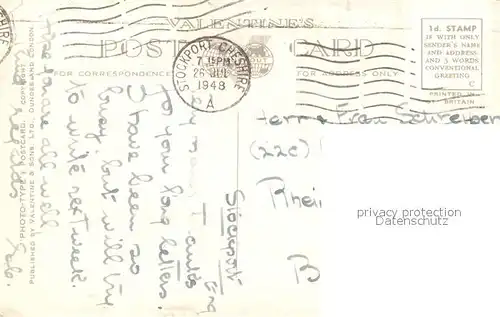 VALENTINE'S
POST CARD
FOR CORRESPONDENCE
FOR ADDRESS ONLY
STOCKPORT CHESHIRE
7. 15 PM
26 JUL
1948
A
1d. STAMP
IF WITH ONLY
SENDER'S NAME
AND ADDRESS
AND 5 WORDS
CONVENTIONAL
GREETING
C
PRINTED IN
GT BRITAIN
Frau Schreiber
(22c)
Rhei
B
Stockport
Eng
many Thanks
for your long letters.
I have been so
busy, but will try
to write next week.
Hope you are all well
Kind regards
"PHOTO-TYPE" POSTCARD. COPYRIGHT
PUBLISHED BY VALENTINE & SONS, LTD., DUNDEE AND LONDON
privacy protection
Datenschutz